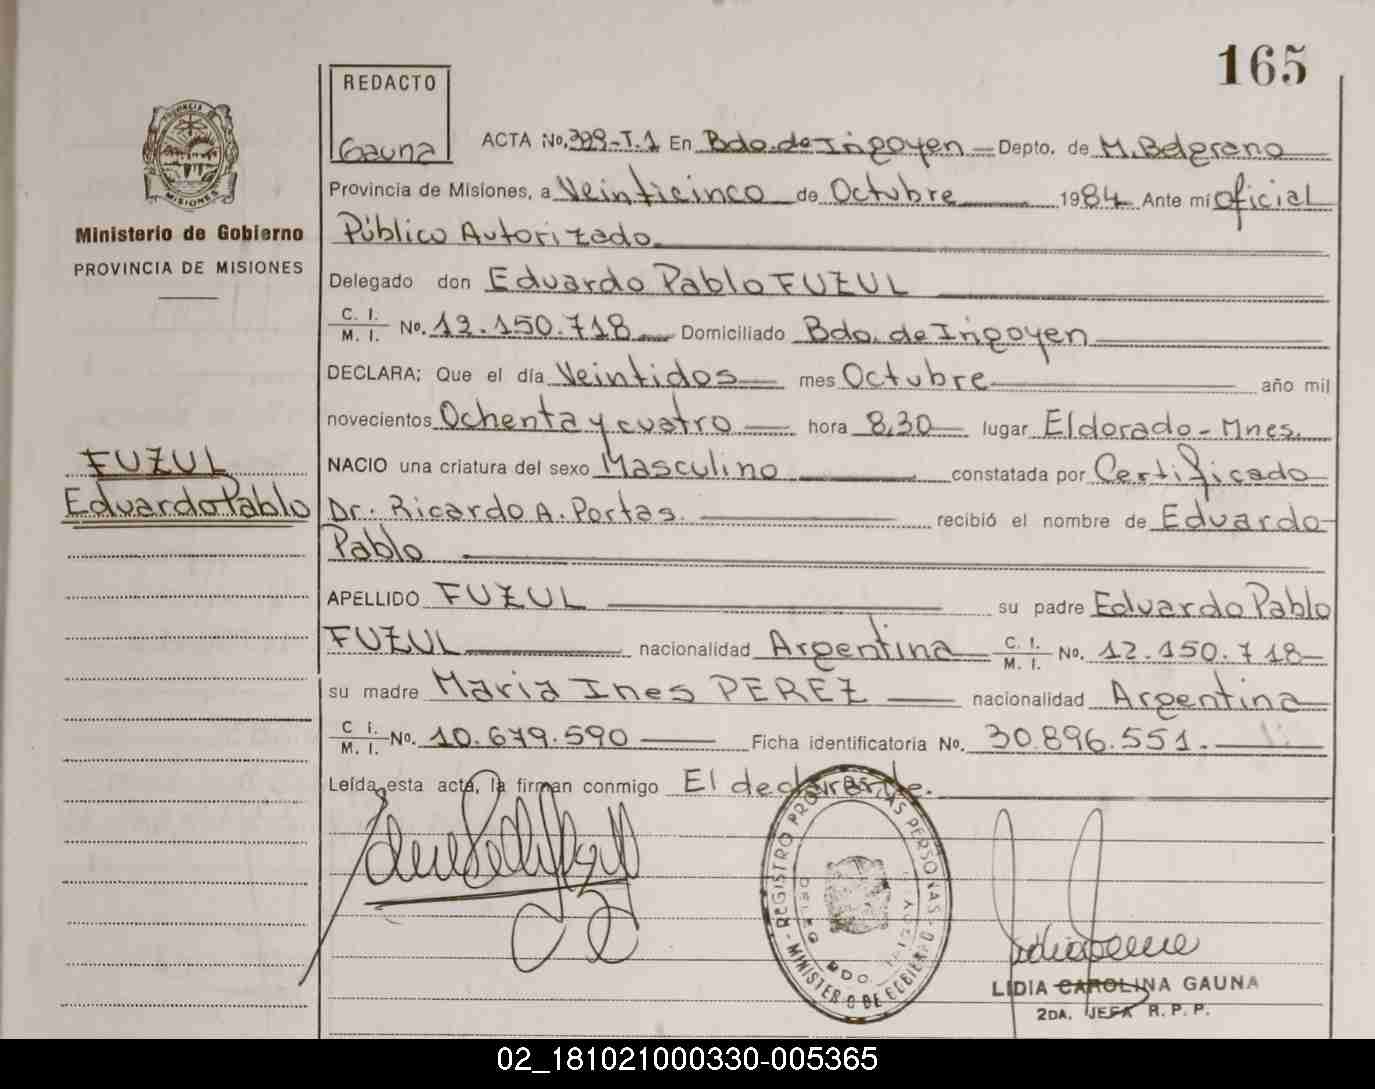 165
REDACTO
Gauna
ACTA No. 399-T.1 En Bdo. de Irigoyen Depto. de M. Belgrano
PROVINCIA
MISIONES
Ministerio de Gobierno
PROVINCIA DE MISIONES
Provincia de Misiones, a Veinticinco de Octubre 1984 Ante mi oficial
Público Autorizado
Delegado don Eduardo Pablo FUZUL
C. I.
M. I. No. 12.150.718 Domiciliado Bdo. de Irigoyen
DECLARA: Que el día Veintidos mes Octubre año mil
novecientos Ochenta y cuatro hora 8,30 lugar Eldorado - Mnes.
FUZUL
Eduardo Pablo
NACIO una criatura del sexo Masculino constatada por Certificado
Dr. Ricardo A. Portas. recibió el nombre de Eduardo
Pablo
APELLIDO FUZUL su padre Eduardo Pablo
FUZUL nacionalidad Argentina C. I. M. I. No. 12.150.718
su madre Maria Ines PEREZ nacionalidad Argentina
C I. M. I. No. 10.679.590 Ficha identificatoria No. 30.896.551.
Leída esta acta, la firman conmigo El declarante.
REGISTRO PROV. DE LAS PERSONAS
MINISTERIO DE GOBIERNO
BDO.
LIDIA CAROLINA GAUNA
2DA. JEFA R. P. P.
02_181021000330-005365